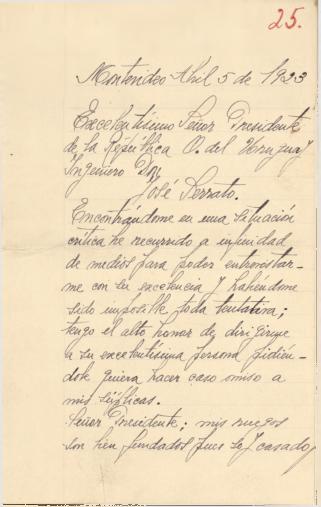 25.
Montevideo Abril 5 de 1923
Excelentísimo Señor Presidente
de la República O. del Uruguay
Ingeniero Don
José Serrato.
Encontrándome en una situación
crítica he recurrido a infinidad
de medios para poder entrevistar-
me con su excelencia y habiéndome
sido imposible toda tentativa;
tengo el alto honor de dirigirme
a su excelentísima persona pidién-
dole quiera hacer caso omiso a
mis súplicas.
Señor Presidente; mis ruegos
son bien fundados pues soy casado,